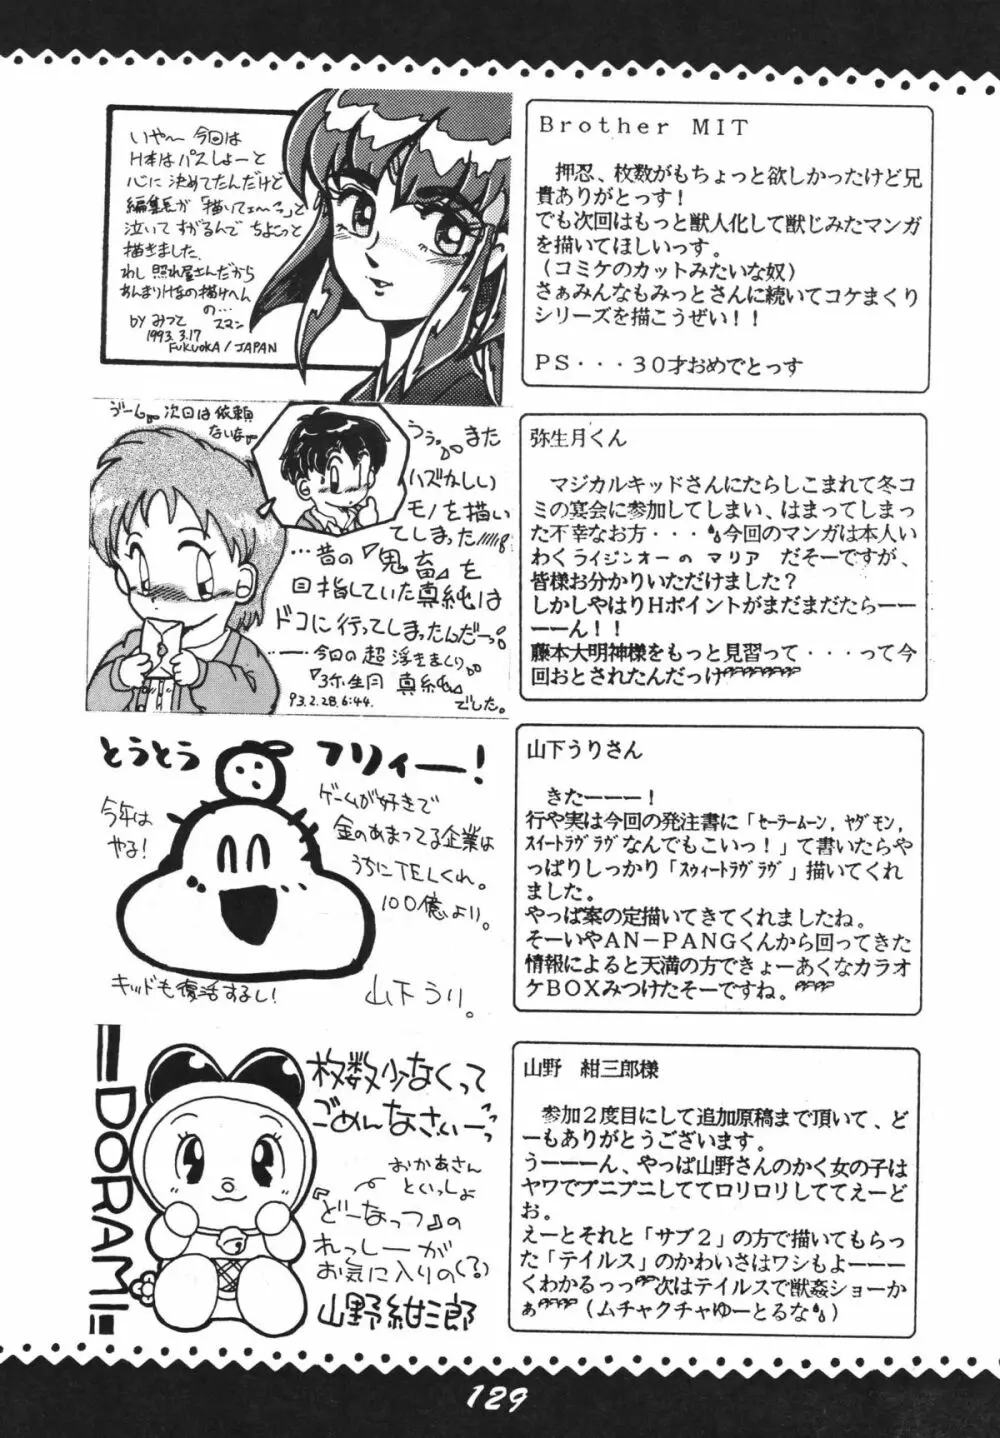 いや～今回は
H本はパスしよーと
心に決めてたんだけど
編集長が「描いてェ～」と
泣いてすがるんでちょこっと
描きました.
わし照れ屋さんだから
あんまりHなの描けへん
の…
スマン
by みつと
1993.3.17
FUKUOKA/JAPAN
Brother MIT
押忍、枚数がもちょっと欲しかったけど兄
貴ありがとっす！
でも次回はもっと獣人化して獣じみたマンガ
を描いてほしいっす。
（コミケのカットみたいな奴）
さぁみんなもみっとさんに続いてコケまくり
シリーズを描こうぜい！！
PS・・・30才おめでとっす
うーム。次回は依頼
ないな。
うぅ。。また
ハズかしい
モノを描い
てしまった
…昔の『鬼畜』を
目指していた真純は
ドコに行ってしまったんだーっ
……今回の超浮きまくり
『弥生月真純』
でした。
93.2.28.6:44.
弥生月くん
マジカルキッドさんにたらしこまれて冬コ
ミの宴会に参加してしまい、はまってしまっ
た不幸なお方・・・今回のマンガは本人い
わくライジンオーの マリア だそーですが、
皆様お分かりいただけました？
しかしやはりHポイントがまだまだたらーー
ーーん！！
藤本大明神様をもっと見習って・・・って今
回おとされたんだっけ
とうとう フリィー！
今年は
やる！
ゲームが好きで
金のあまってる企業は
うちにTELくれ。
100億より。
キッドも復活するし！
山下うり。
山下うりさん
きたーーー！
行や実は今回の発注書に「ｾｰﾗｰﾑｰﾝ,ﾔﾀﾞﾓﾝ,
ｽｲｰﾄﾗｳﾞﾗｳﾞなんでもこいっ！」て書いたらや
っぱりしっかり「ｽｳｨｰﾄﾗｳﾞﾗｳﾞ」描いてくれ
ました。
やっぱ案の定描いてきてくれましたね。
そーいやAN－PANGくんから回ってきた
情報によると天満の方できょーあくなカラオ
ケBOXみつけたそーですね。
DORAMI
枚数少なくって
ごめんなさいーっ
おかあさん
といっしょ
『どーなっつ』の
れっしーが
お気に入りの(る)
山野紺三郎
山野 紺三郎様
参加2度目にして追加原稿まで頂いて、ど
ーもありがとうございます。
うーーーん、やっぱ山野さんのかく女の子は
ヤワでプニプニしててロリロリしててえーど
お。
えーとそれと「サブ2」の方で描いてもらっ
た「テイルス」のかわいさはワシもよーーー
くわかるっっ次はテイルスで獣姦ショーか
ぁ（ムチャクチャゆーとるな）
129